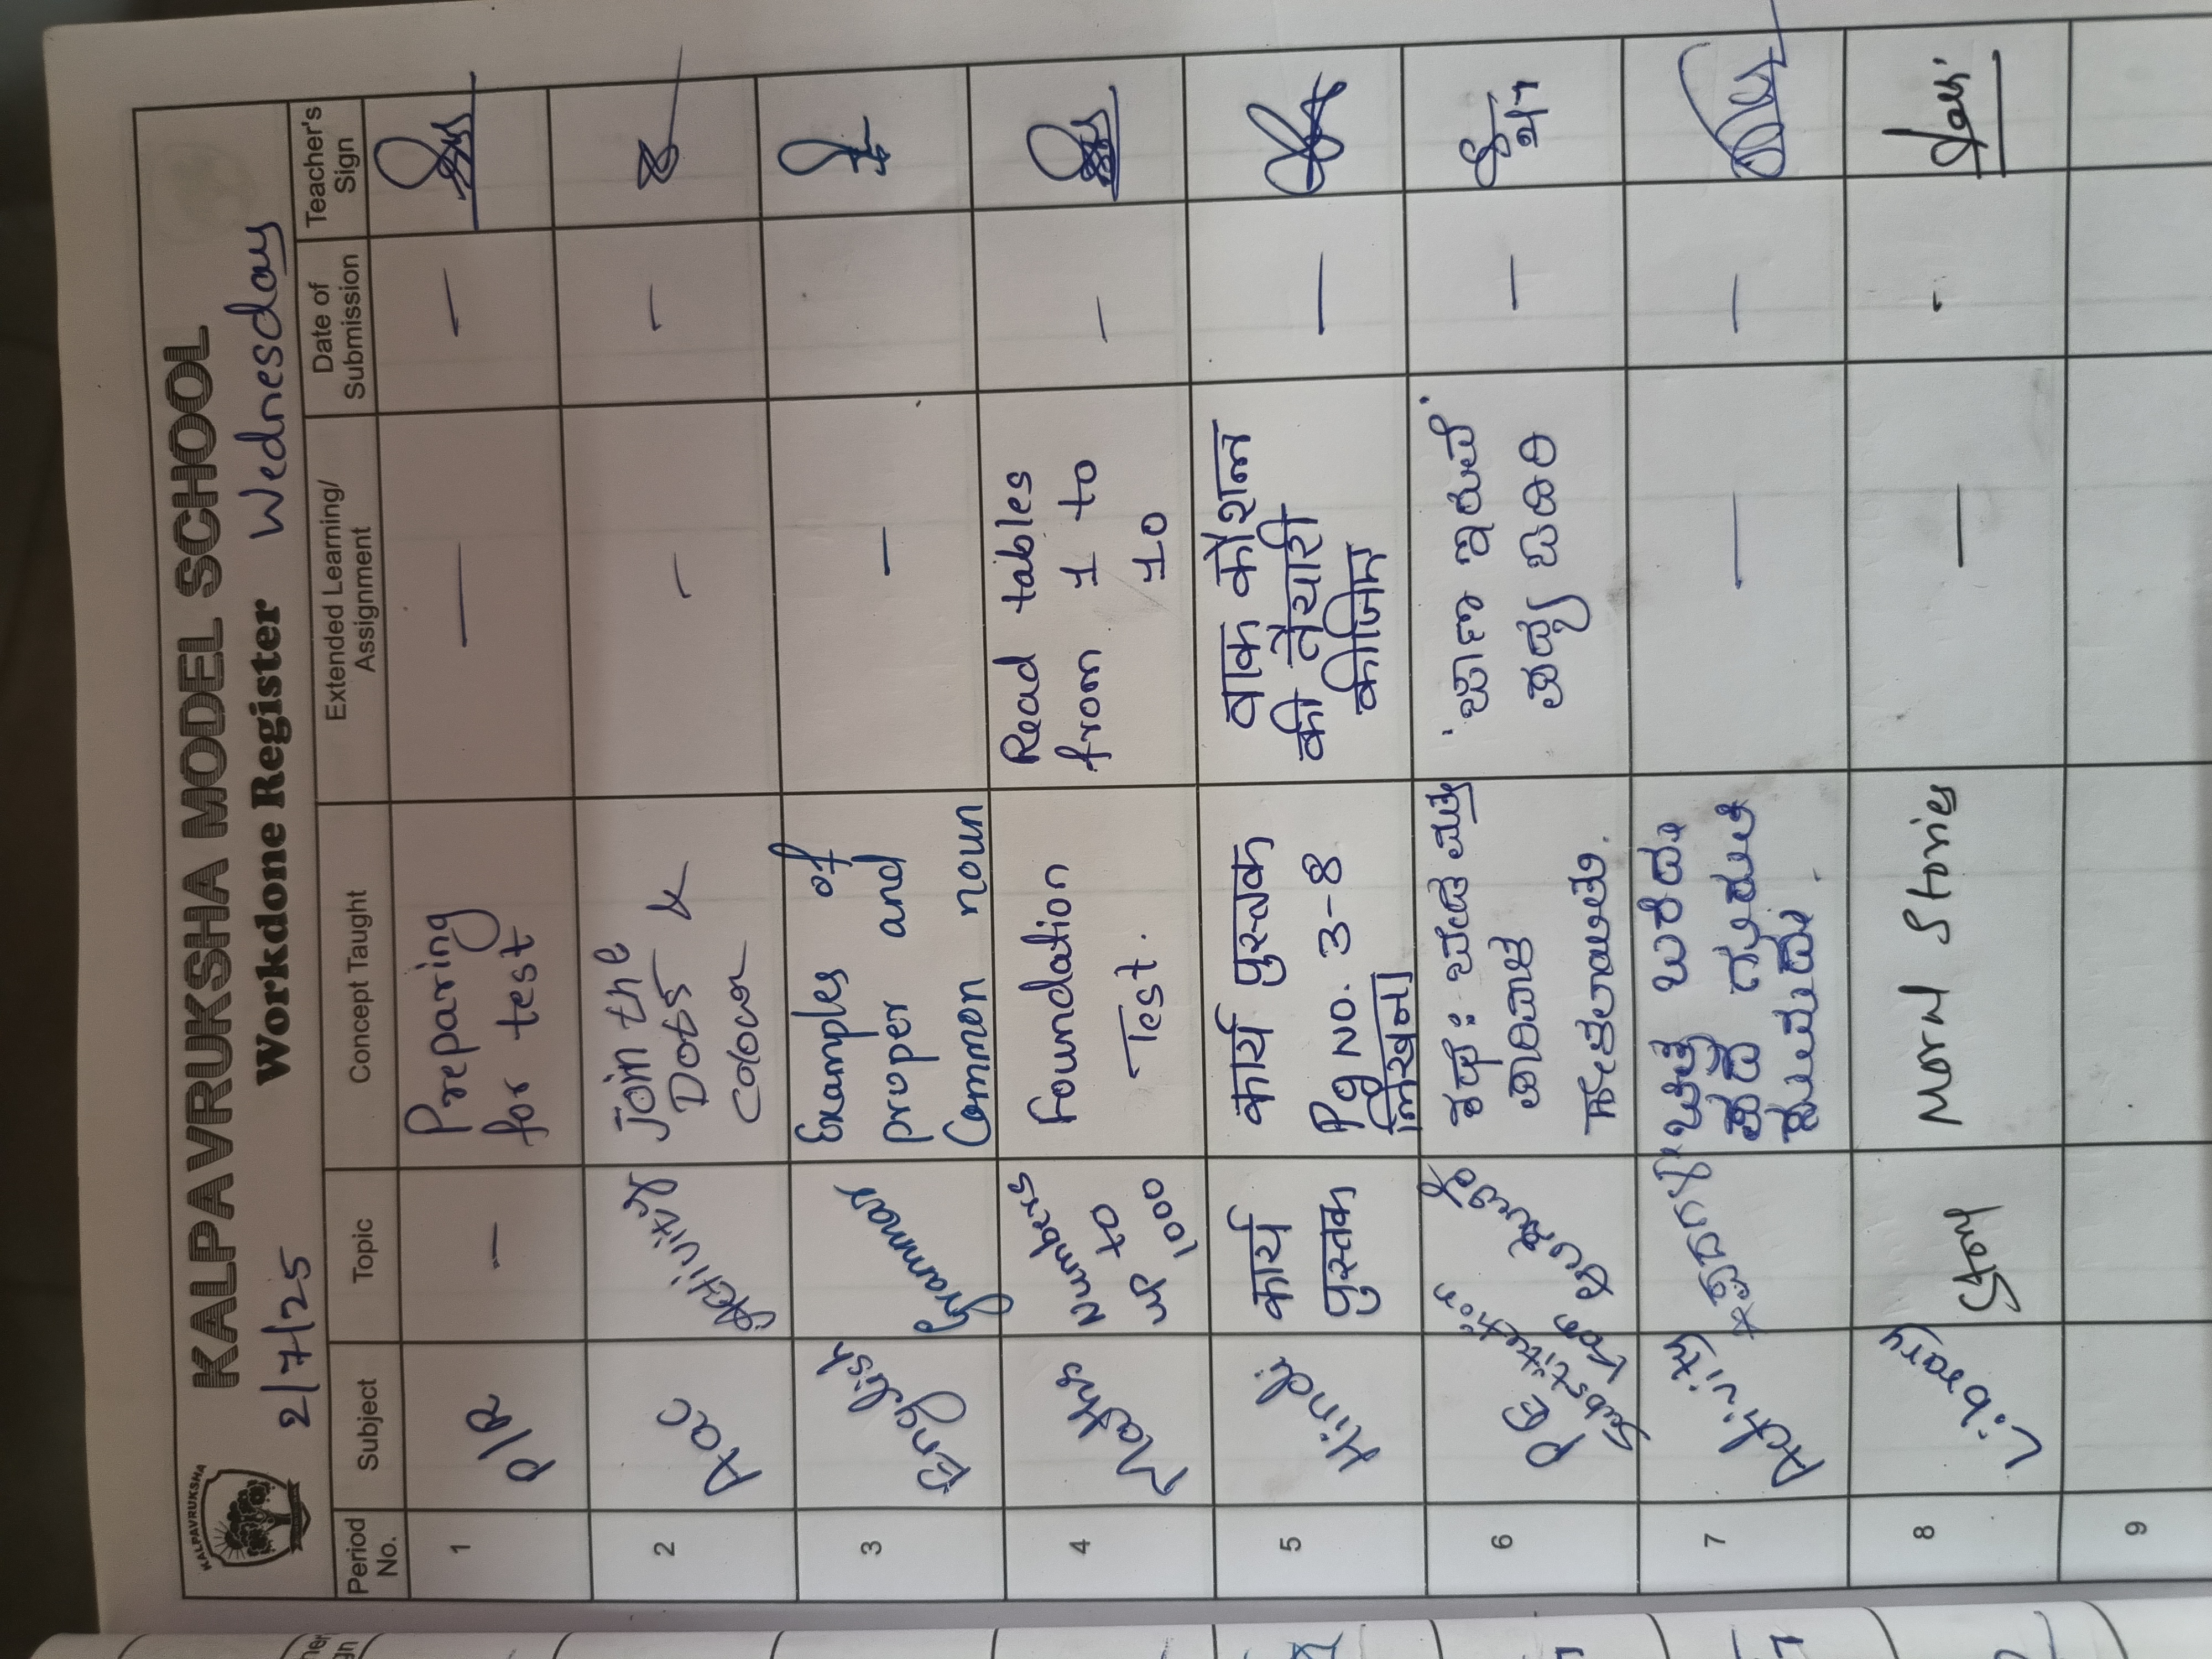 KALPAVRUKSHA
KALPAVRUKSHA MODEL SCHOOL
2/7/25 Workdone Register Wednesday
Period No. Subject Topic Concept Taught Extended Learning/ Assignment Date of Submission Teacher's Sign
1 P/R — Preparing — —
for test
2 Aac Activity Join the — —
Dots &
colour
3 English Grammar Examples of —
proper and
Common noun
4 Maths Numbers up to 1000 Foundation Read tables —
Test. from 1 to
10
5 Hindi कार्य पुस्तक कार्य पुस्तक वाक कौशल —
Pg No. 3-8 की तैयारी
लिखना कीजिए
6 PE Substitution Kan ಕಥೆ: ಬೇಡ ಮತ್ತು 'ಜಾಣ ಇರುವೆ' —
ಪಾರಿವಾಳ ಪದ್ಯ ಬರಿರಿ
ಹೇಳಲಾಯಿತು.
7 Activity ಚಿತ್ರ ಬರೆದು — —
8 Library Story Moral Stories — -
9